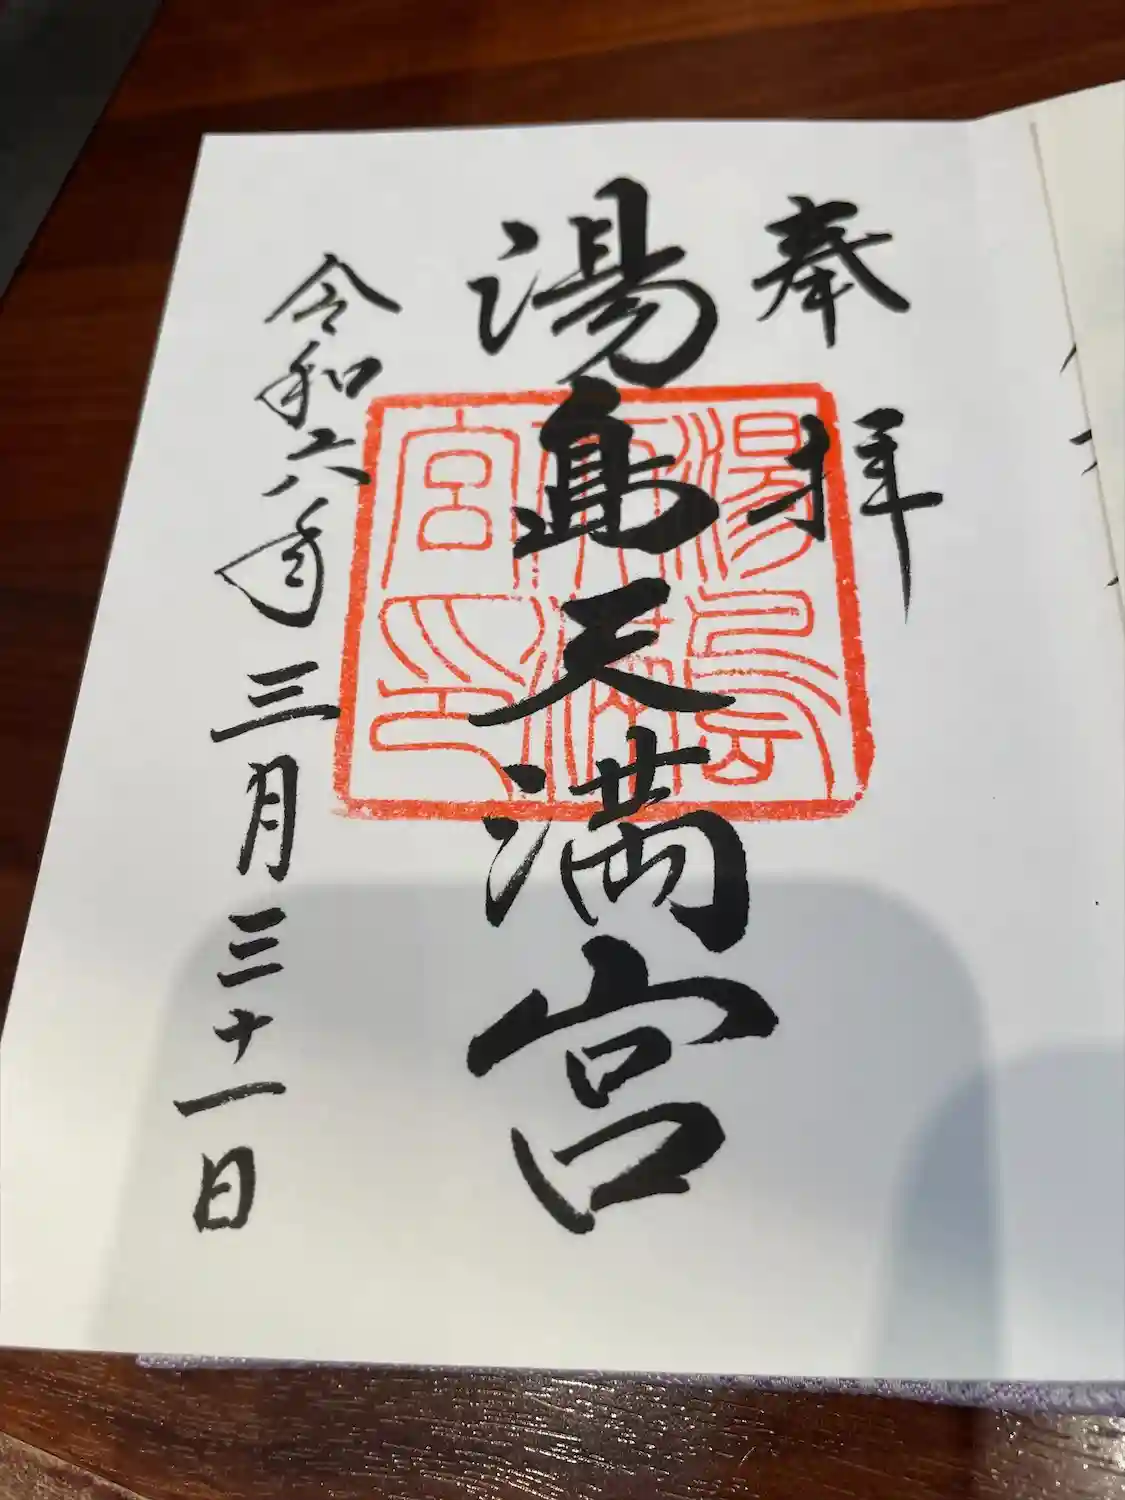 奉拝
湯島天満宮
湯島天満宮印
令和六年三月三十一日